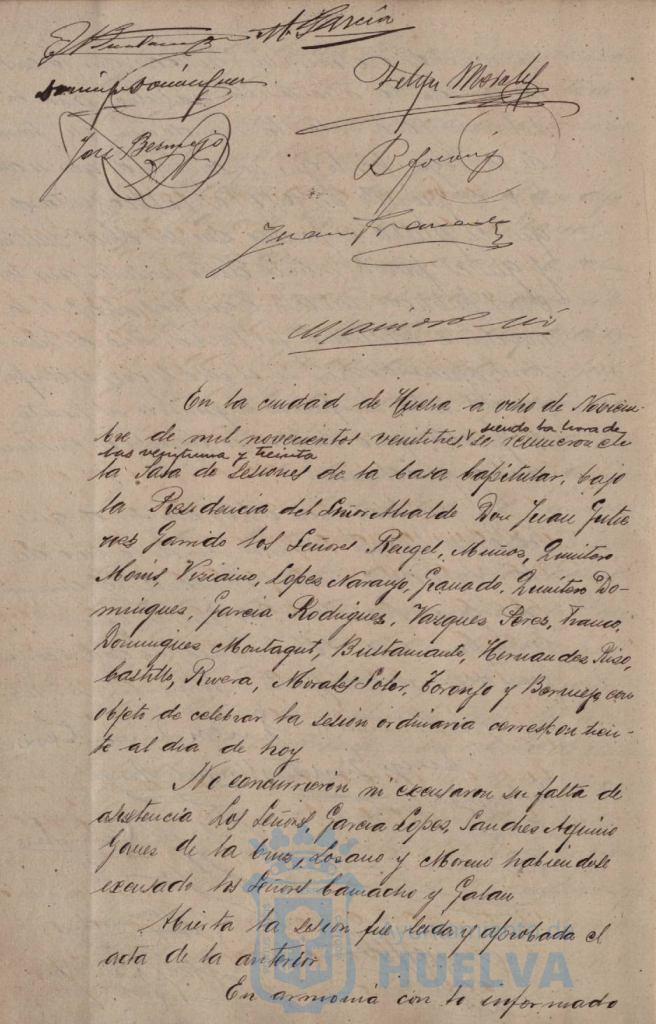 M. García
Felipe Morales
José Bermejo
Juan
En la ciudad de Huelva a ocho de Noviem-
bre de mil novecientos veintitres, siendo la hora de
las veintiuna y treinta se reunieron en
la Sala de Sesiones de la Casa Capitular, bajo
la Presidencia del Señor Alcalde Don Juan Gutie
rres Garrido los Señores Rengel, Muñoz, Quintero
Monis, Viziaino, Lopes Naranjo, Granado, Quintero Do-
mingues, Garcia Rodrigues, Vazques Peres, Franco,
Domingues Montagut, Bustamante, Hernandes Piso,
Castillo, Rivera, Morales Soler, Toronjo y Bermejo con
objeto de celebrar la sesion ordinaria correspondien-
te al dia de hoy
No concurrieron ni excusaron su falta de
asistencia los Señores, Garcia Lopes, Sanches Aquino
Gomes de la Cruz, Losano y Moreno habiendose
excusado los Señores Camacho y Galan
Abierta la sesion fue leida y aprobada el
acta de la anterior
HUELVA
En armonia con lo informado